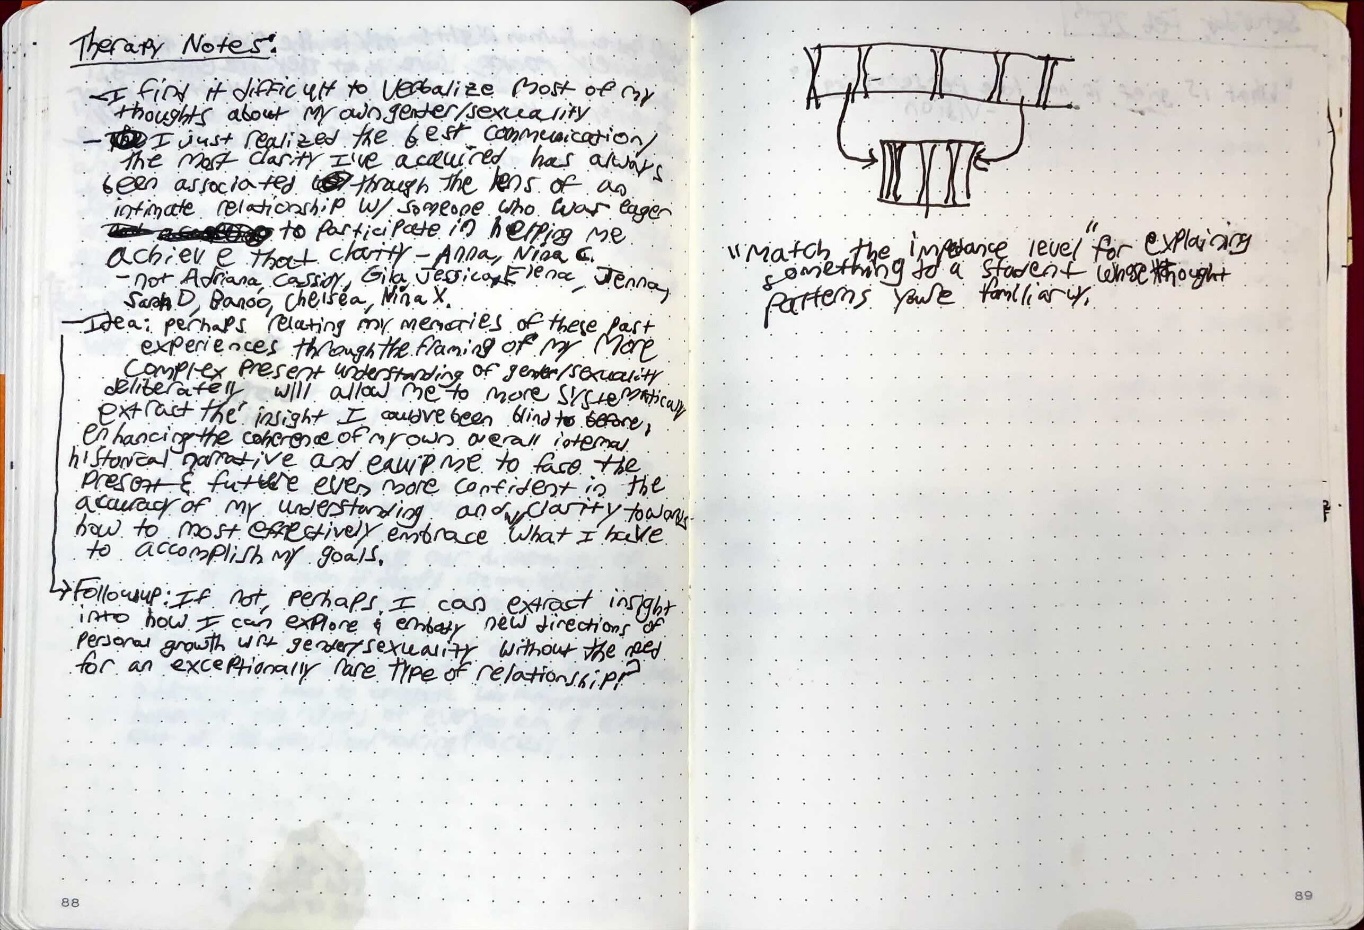 Therapy Notes:
- I find it difficult to verbalize most of my
thoughts about my own gender/sexuality
- I just realized the best communication/
the most clarity I've acquired has always
been associated through the lens of an
intimate relationship w/ someone who was eager
to participate in helping me
achieve that clarity - Anna, Nina C.
- not Adriana, Cassidy, Gila, Jessica, Elena, Jenna,
Sarah D, Chelsea, Nina X.
- Idea: perhaps relating my memories of these past
experiences through the framing of my more
complex present understanding of gender/sexuality
deliberately will allow me to more systematically
extract the insight I could've been blind to before,
enhancing the coherence of my own overall internal
historical narrative and equip me to face the
present & future even more confident in the
accuracy of my understanding and clarity towards
how to most effectively embrace what I have
to accomplish my goals.
→ Followup: If not, perhaps I can extract insight
into how I can explore & embody new directions of
personal growth wrt gender/sexuality without the need
for an exceptionally rare type of relationship?
88
"Match the impedance level" for explaining
something to a student whose thought
patterns you're familiar w/.
89